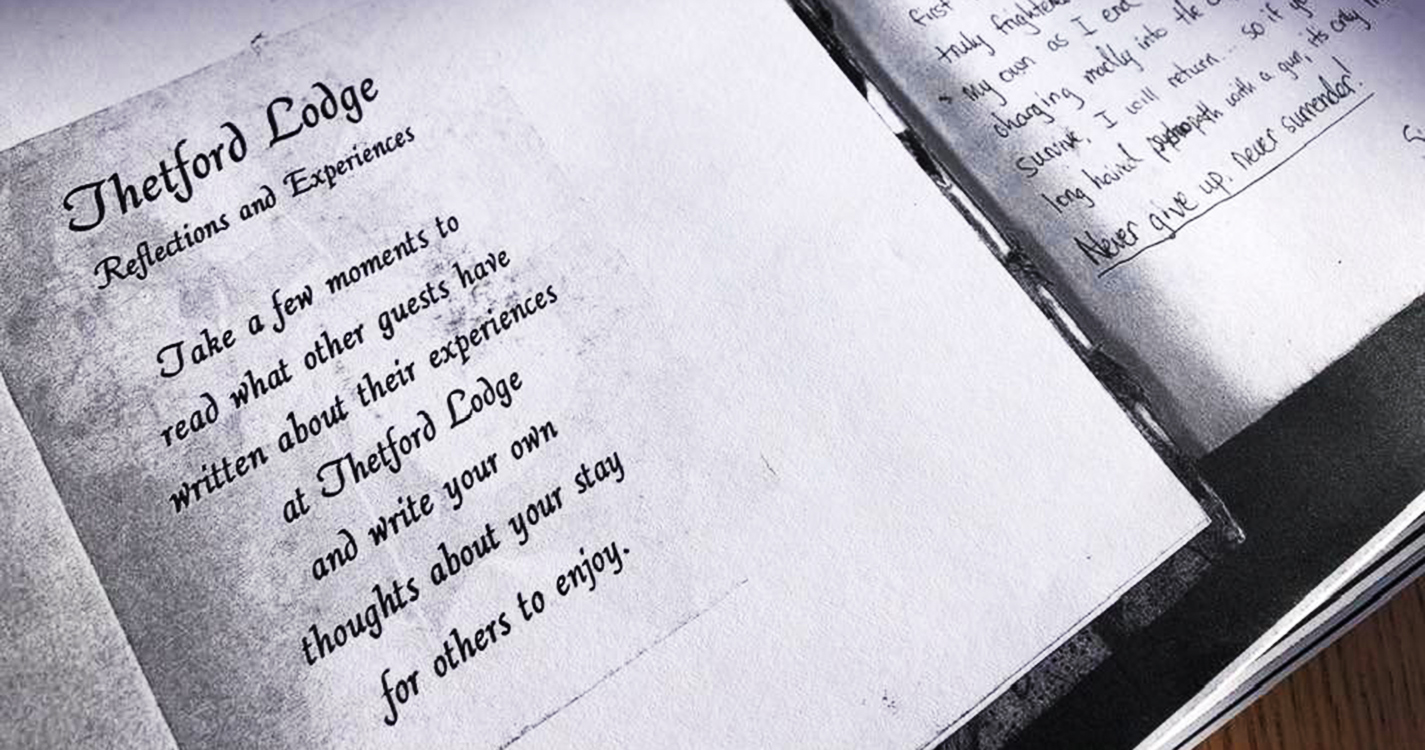 Thetford Lodge
Reflections and Experiences
Take a few moments to
read what other guests have
written about their experiences
at Thetford Lodge
and write your own
thoughts about your stay
for others to enjoy.
first
truly frightened
my own as I end
charging madly into the
survive, I will return... so if
long haired psychopath with a gun, its only
Never give up. Never surrender!